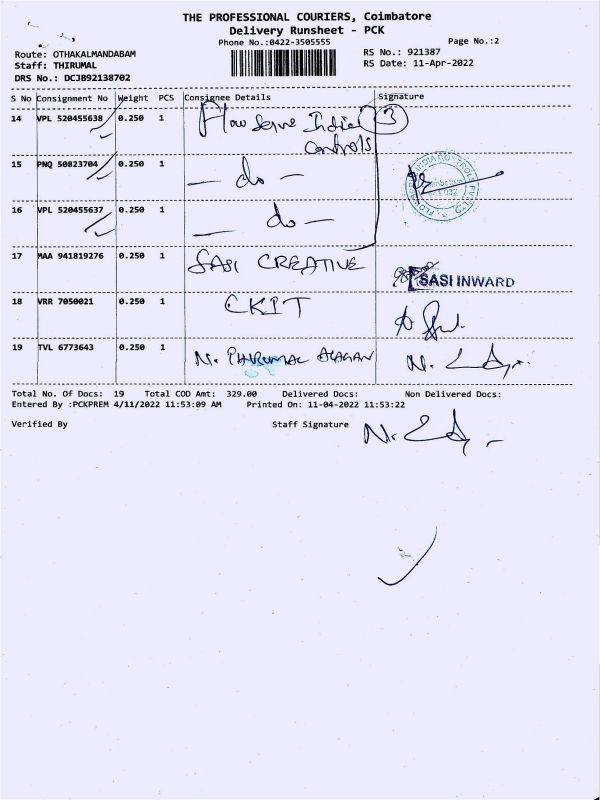 THE PROFESSIONAL COURIERS, Coimbatore
Delivery Runsheet - PCK
Phone No.:0422-3505555
Page No.:2
Route: OTHAKALMANDABAM
RS No.: 921387
Staff: THIRUMAL
RS Date: 11-Apr-2022
DRS No.: DCJ892138702
S No Consignment No Weight PCS Consignee Details Signature
14 VPL 520455638 0.250 1 Flow Serve India 3
Controls
15 PNQ 50823704 0.250 1 — do —
16 VPL 520455637 0.250 1 — do —
17 MAA 941819276 0.250 1 SASI CREATIVE
SASI INWARD
18 VRR 7050021 0.250 1 CKIT
19 TVL 6773643 0.250 1 N.
Total No. Of Docs: 19 Total COD Amt: 329.00 Delivered Docs: Non Delivered Docs:
Entered By :PCKPREM 4/11/2022 11:53:09 AM Printed On: 11-04-2022 11:53:22
Verified By Staff Signature